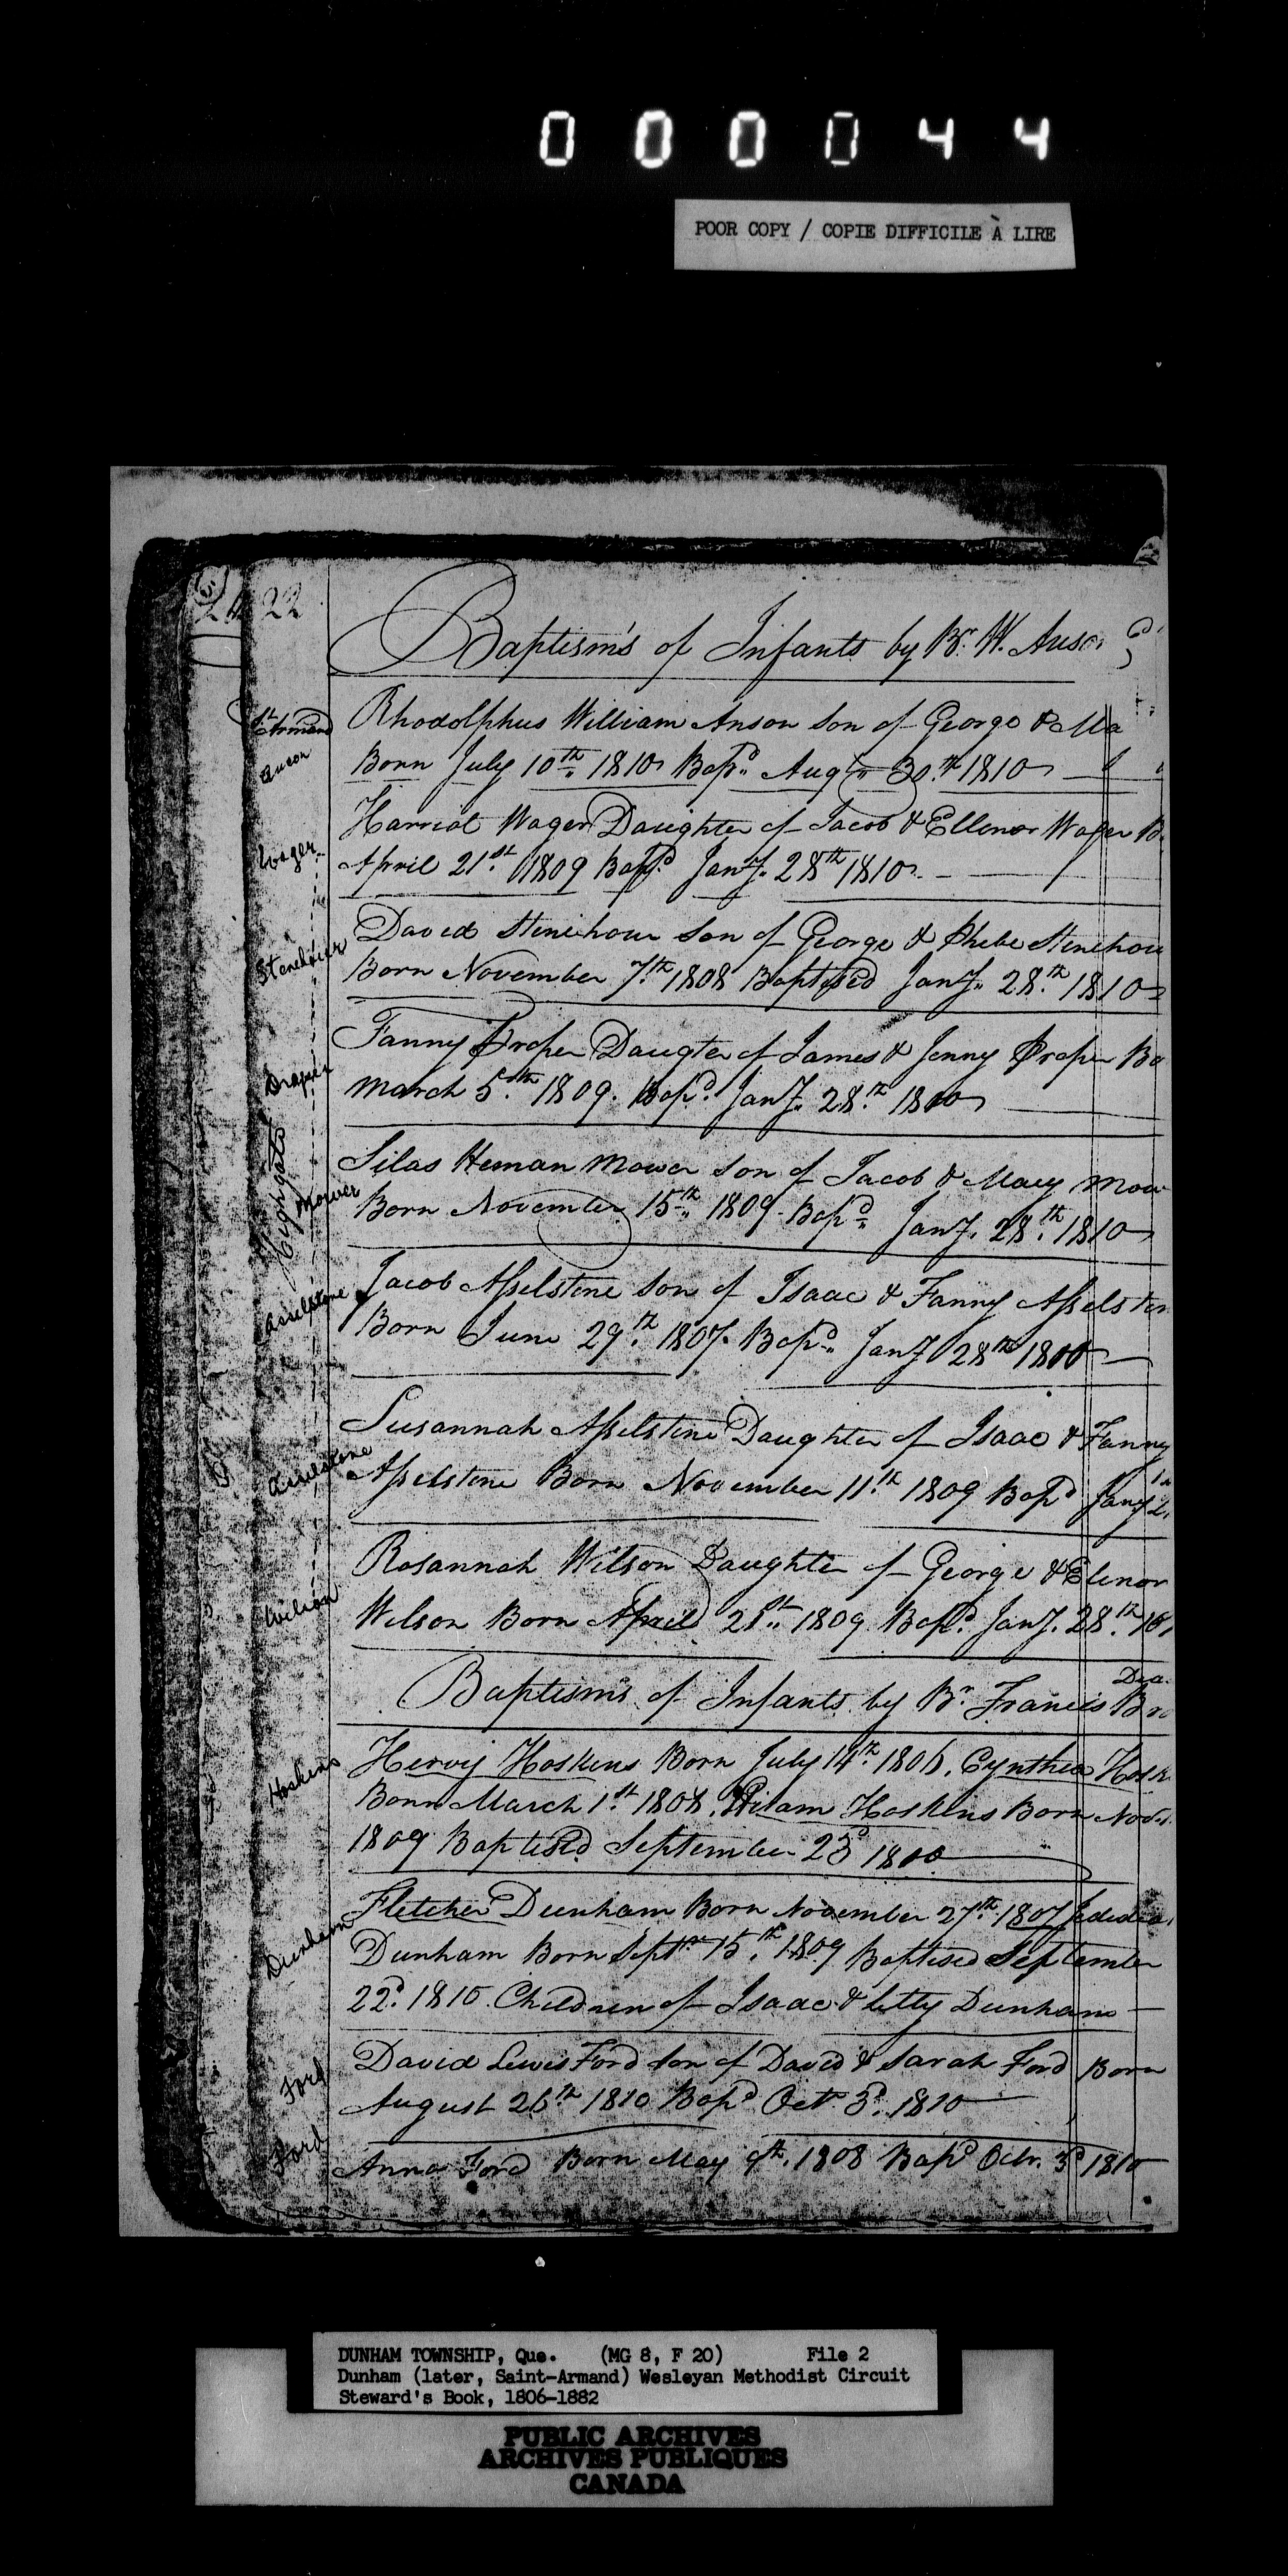 000044
POOR COPY / COPIE DIFFICILE À LIRE
22
Baptism's of Infants by Br. W. Anson
St Armand
Anson
Rhodolphus William Anson Son of George & Ma
Born July 10th 1810 Bapd. Augt 30th 1810
Wager
Harriot Wager Daughter of Jacob & Ellenor Wager B
April 21st 1809 Bapd. Jany. 28th 1810
Stenehour
David Stenehour Son of George & Phebe Stenehou
Born November 7th 1808 Baptised Jany. 28th 1810
Draper
Fanny Draper Daugter of James & Jenny Draper Bo
March 5th 1809. Bapd. Jany. 28th 1810
Highgate
Mower
Silas Heman Mower Son of Jacob & Mary Mow
Born November 15th 1809 Bapd. Jany. 28th 1810
Asselstone
Jacob Asselstine Son of Isaac & Fanny Asselstin
Born June 29th 1807. Bapd. Jany 28th 1810
Asselstone
Susannah Asselstine Daughter of Isaac & Fanny
Asselstine Born November 11th 1809 Bapd Jany 2
Wilson
Rosannah Wilson Daughter of George & Elenor
Wilson Born April 21st 1809 Bapd. Jany. 28th 181
Baptism's of Infants by Br. Francis Bro
Hoskins
Hervy Hoskins Born July 14th 1806. Cynthia Hosk
Born March 1st 1808. Hiram Hoskins Born Nov
1809 Baptised September 23d 1810
Dunham
Fletcher Dunham Born November 27th 1807 Jededia
Dunham Born Septr 15th 1809 Baptised September
22d. 1810. Children of Isaac & Letty Dunham
Ford
David Lewis Ford Son of David & Sarah Ford Born
August 26th 1810 Bapd Octr. 3d. 1810
Ford
Anna Ford Born May 9th. 1808 Bapd Octr. 3d 1810
DUNHAM TOWNSHIP, Que. (MG 8, F 20) File 2
Dunham (later, Saint-Armand) Wesleyan Methodist Circuit
Steward's Book, 1806-1882
PUBLIC ARCHIVES
ARCHIVES PUBLIQUES
CANADA